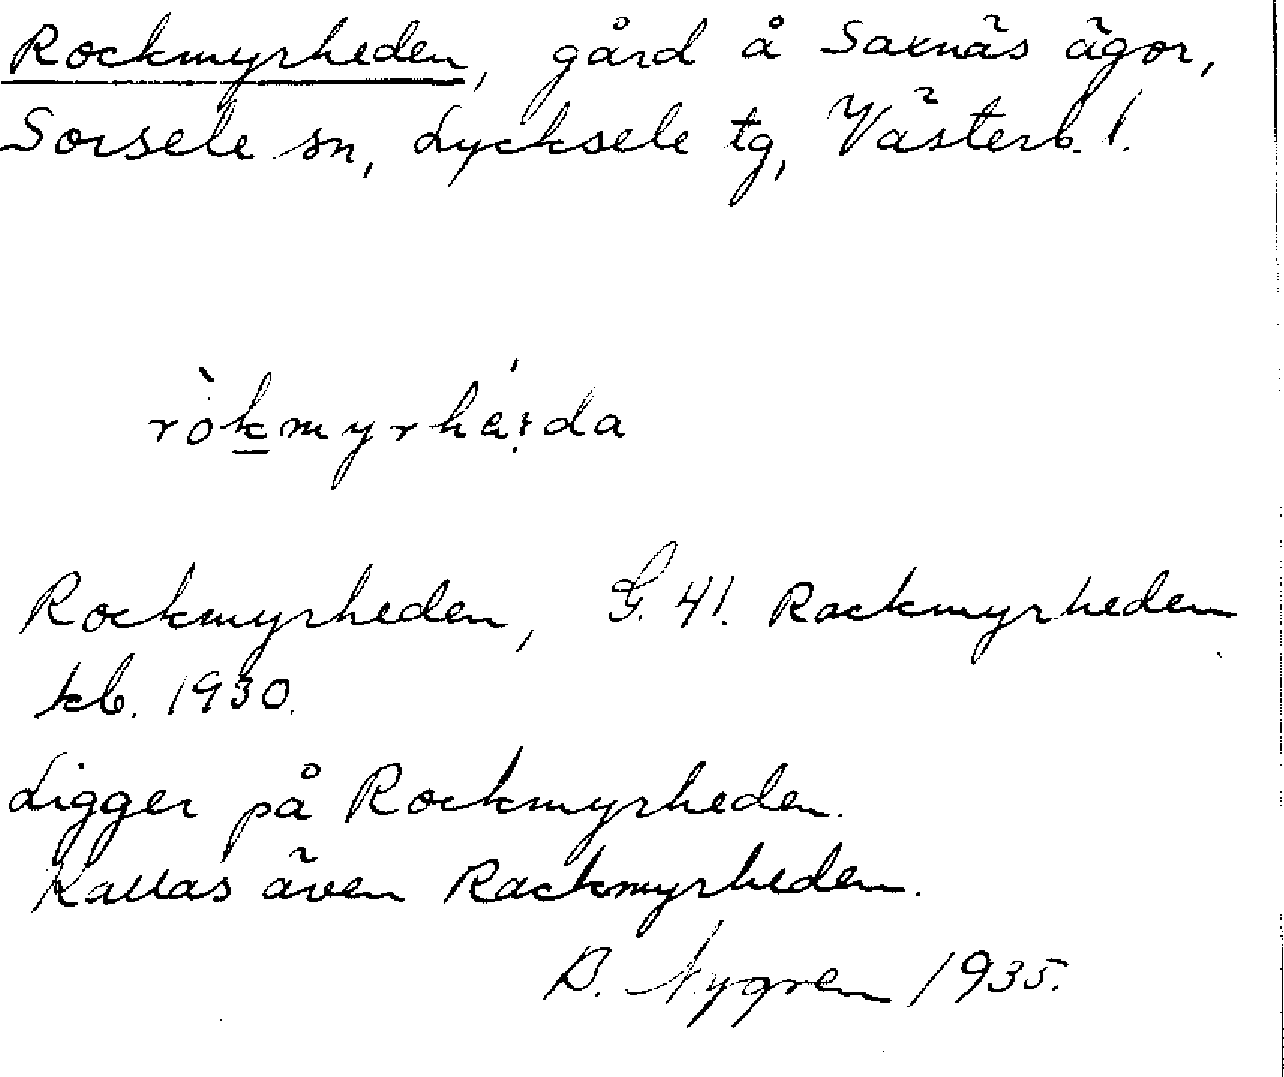 Rockmyrheden, gård å Saxnäs ägor,
Sorsele sn, Lycksele tg, Västerb. l.
ròkmyrhá:da
Rockmyrheden, G. 41. Rackmyrheden
kb. 1930.
Ligger på Rockmyrheden.
Kallas även Rackmyrheden.
Nygren 1935.